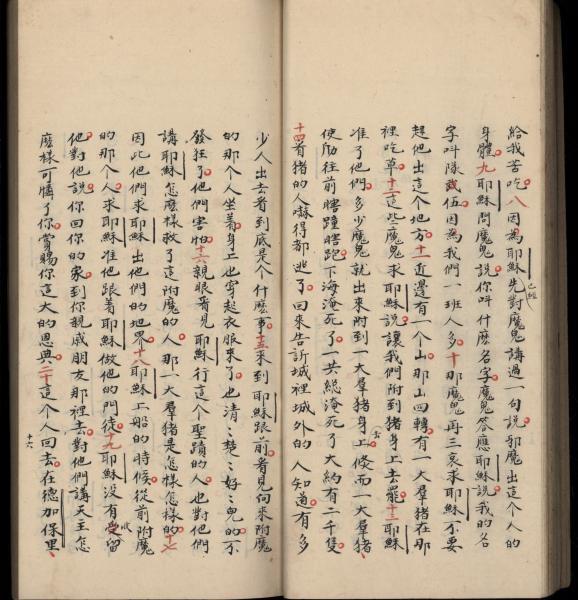 給我苦吃八因為耶穌先對魔鬼講過一句說邪魔出這个人的
已經
身體九耶穌問魔鬼說你叫什麽名字魔鬼答應耶穌說我的名
字叫隊武伍因為我們一班人多十那魔鬼再三哀求耶穌不要
趕他出這个地方十一近邊有一个山那山四轉有一大羣猪在那
裡吃草十二這些魔鬼求耶穌說讓我們附到猪身上去罷十三耶穌
准了他們多少魔鬼就出來附到一大羣猪身上倐而一大羣猪
往前瞎蹱瞎跑下海淹死了一共総淹死了大約有二千隻
十四看猪的人嚇得都逃了回來告訴城裡城外的人知道有多
少人出去看到底是个什麽事十五來到耶穌跟前看見向來附魔
的那个人坐着身上也穿起衣服來了也清〻楚〻好〻兒的不
發狂了他們害怕十六親眼看見耶穌行這个聖蹟的人也對他們
講耶穌怎麽樣救了這附魔的人那一大羣猪是怎樣怎樣的十七
因此他們求耶穌出他們的地界十八耶穌上船的時候從前附魔
的那个人求耶穌准他跟着耶穌做他的門徒十九耶穌沒有受留
收
他對他說你回你的家到你親戚朋友那裡去對他們講天主怎
麽樣可憐了你賞賜你這大的恩典二十這个人回去在德加保里
十六